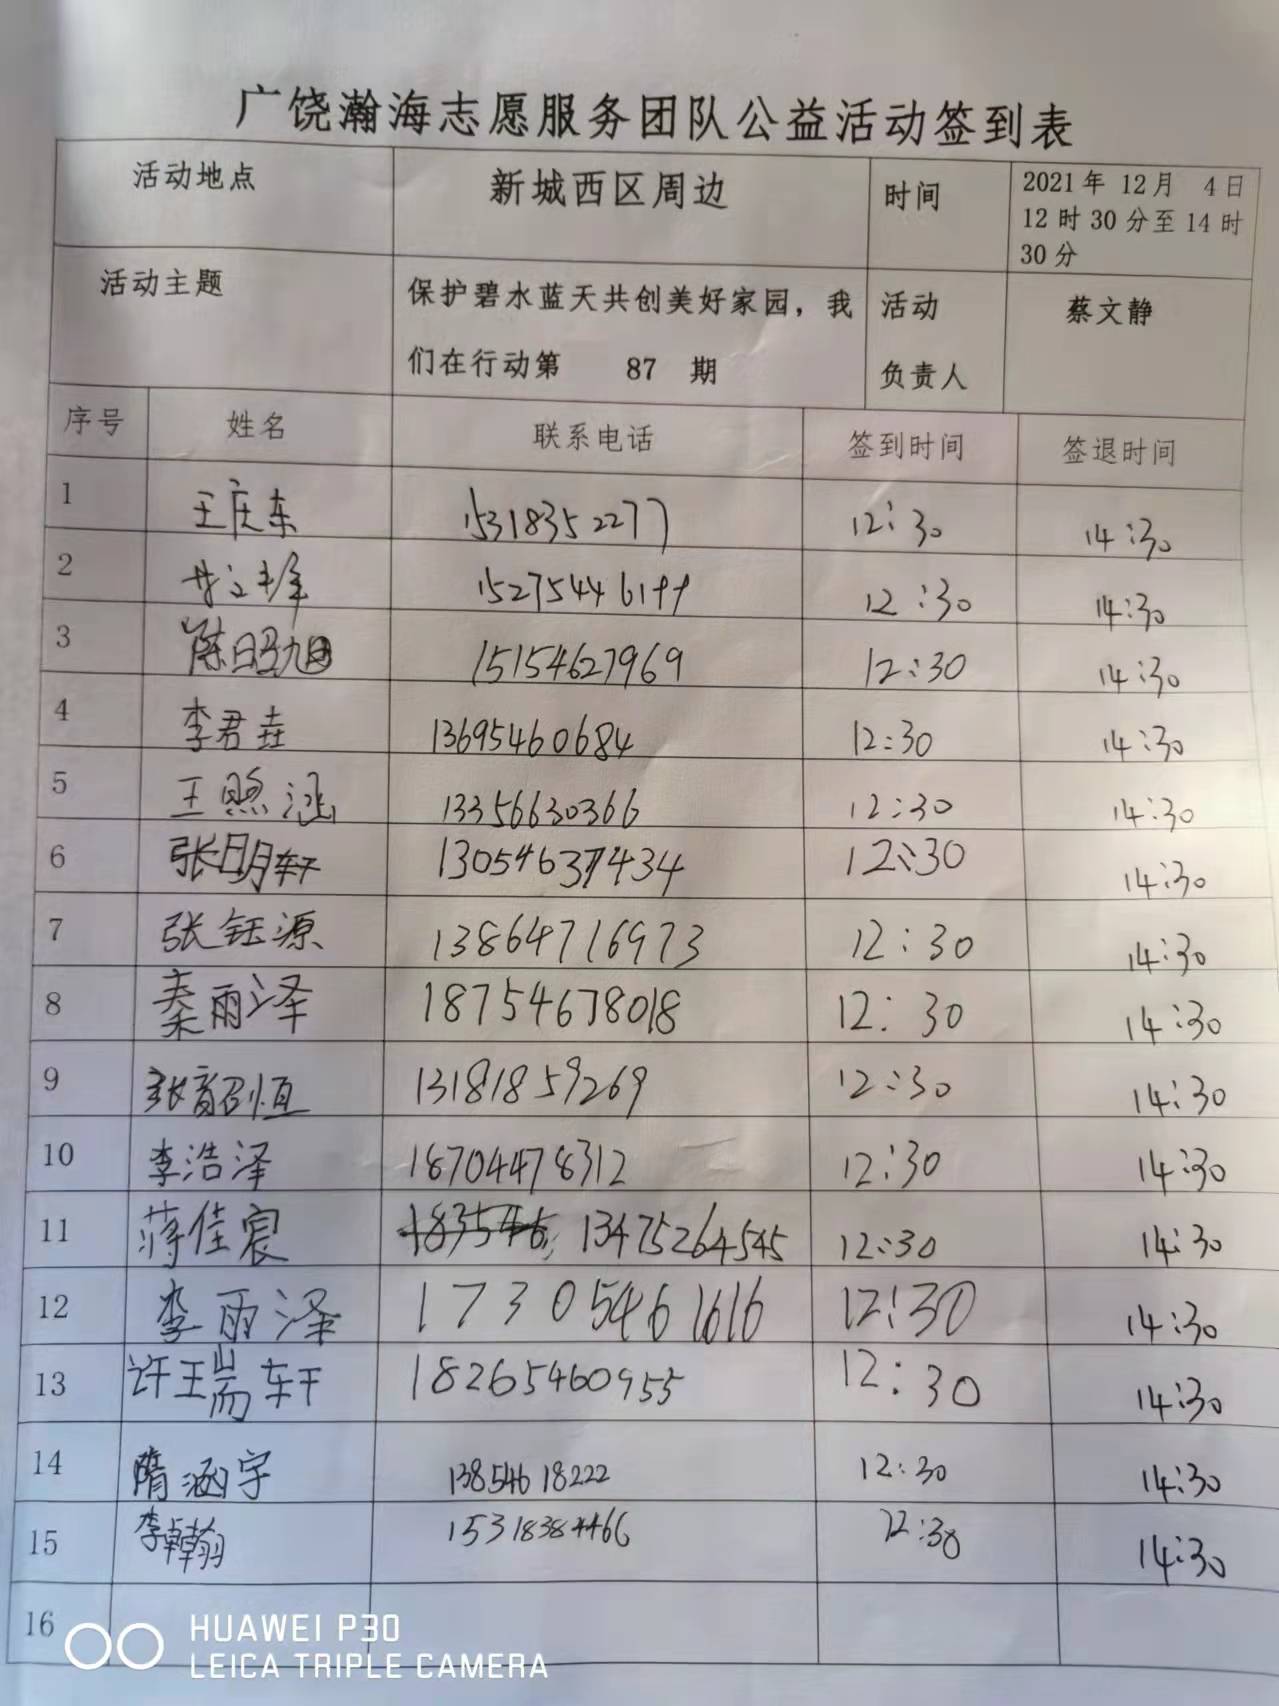 广饶瀚海志愿服务团队公益活动签到表
活动地点 新城西区周边 时间 2021年 12月 4日
12时30分至14时
30分
活动主题 保护碧水蓝天共创美好家园，我 活动 蔡文静
们在行动第 87 期 负责人
序号 姓名 联系电话 签到时间 签退时间
1 王庆东 15318352277 12:30 14:30
2 15275446199 12:30 14:30
3 陈昭旭 15154627969 12:30 14:30
4 李君垚 13695460684 12:30 14:30
5 王煦涵 13356630366 12:30 14:30
6 张明轩 13054637434 12:30 14:30
7 张钰源 13864716973 12:30 14:30
8 秦雨泽 18754678018 12:30 14:30
9 张育韶恒 13181859269 12:30 14:30
10 李浩泽 18704478312 12:30 14:30
11 蒋佳宸 13475264545 12:30 14:30
12 李雨泽 17305461616 12:30 14:30
13 许瑞轩 18265460955 12:30 14:30
14 隋涵宇 13854618222 12:30 14:30
15 李卓翰 15318384466 12:30 14:30
16
HUAWEI P30
LEICA TRIPLE CAMERA